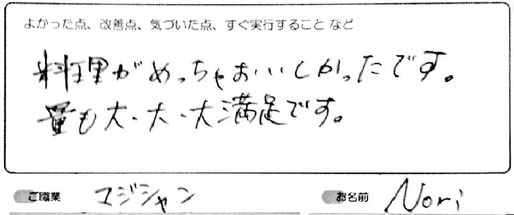 よかった点、改善点、気づいた点、すぐ実行すること など
料理がめっちゃおいしかったです。
量も大、大、大満足です。
ご職業 マジシャン お名前 Nori